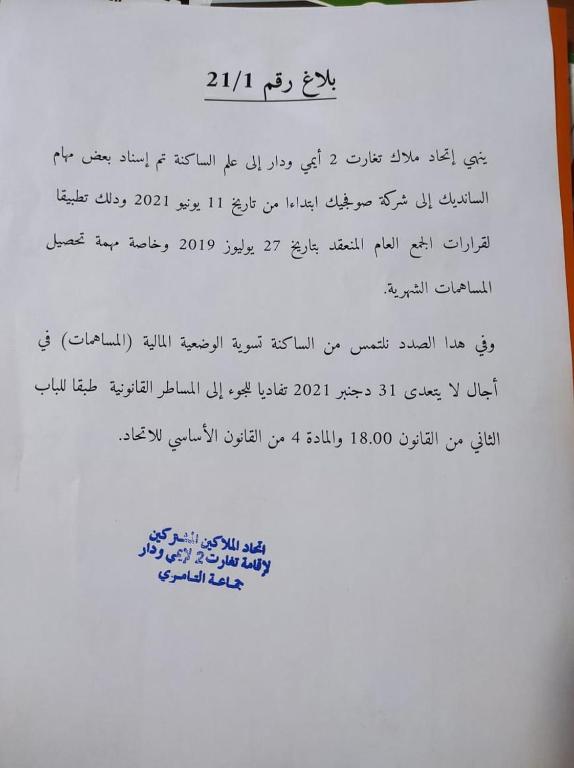 بلاغ رقم 21/1
ينهي إتحاد ملاك تغارت 2 أيمي ودار إلى علم الساكنة تم إسناد بعض مهام
السانديك إلى شركة صوفجيك ابتداءا من تاريخ 11 يونيو 2021 ودلك تطبيقا
لقرارات الجمع العام المنعقد بتاريخ 27 يوليوز 2019 وخاصة مهمة تحصيل
المساهمات الشهرية.
وفي هدا الصدد نلتمس من الساكنة تسوية الوضعية المالية (المساهمات) في
أجال لا يتعدى 31 دجنبر 2021 تفاديا للجوء إلى المساطر القانونية طبقا للباب
الثاني من القانون 18.00 والمادة 4 من القانون الأساسي للاتحاد.
اتحاد الملاكين المشتركين
لإقامة تغارت 2 لإيمي ودار
جماعة التامري